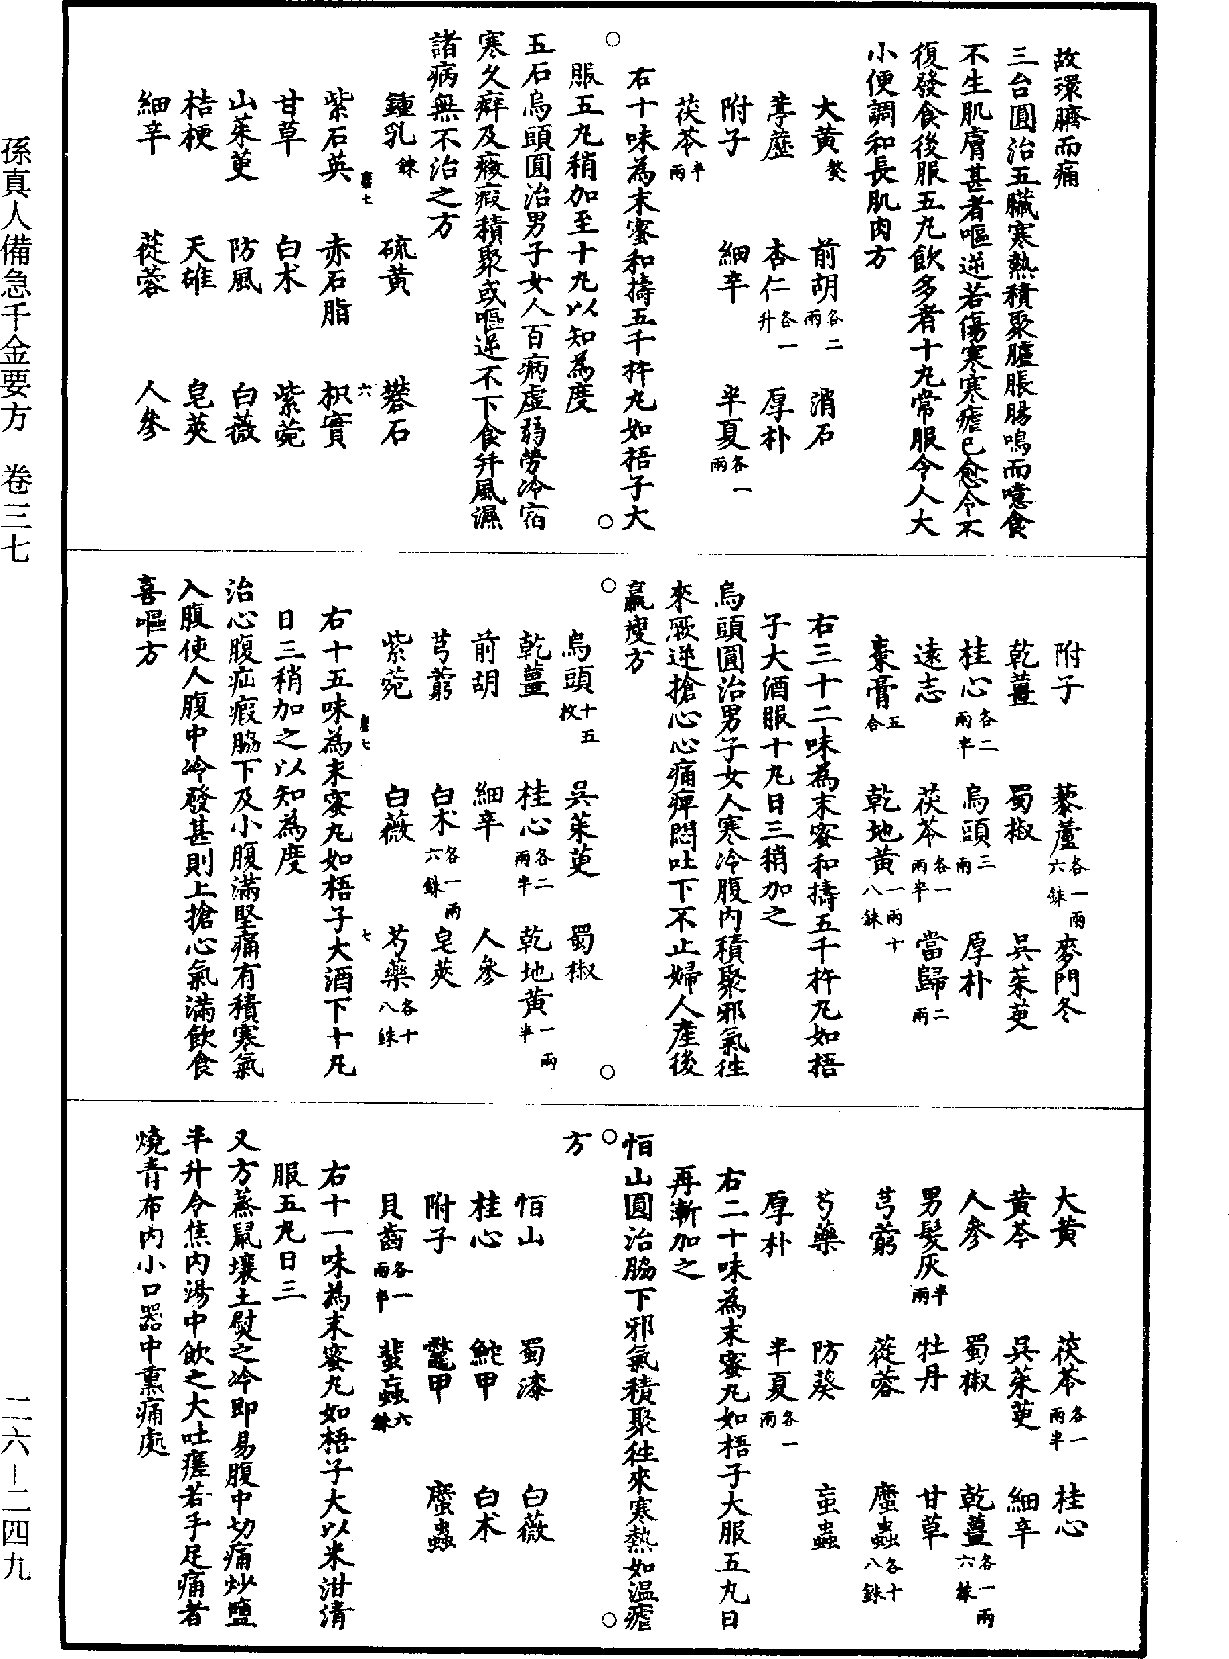 孫真人備急千金要方　卷三七
二六—二四九
故環臍而痛
三台圓治五臟寒熱積聚臚脹腸鳴而噫食
不生肌膚甚者嘔逆若傷寒寒瘧已愈令不
復發食後服五丸飲多者十丸常服令人大
小便調和長肌肉方
大黃熬　前胡各二兩　消石
葶藶　杏仁各一升　厚朴
附子　細辛　半夏各一兩
茯苓半兩
右十味為末蜜和擣五千杵丸如梧子大
服五丸稍加至十丸以知為度
五石烏頭圓治男子女人百病虛弱勞冷宿
寒久癖及癥瘕積聚或嘔逆不下食并風濕
諸病無不治之方
鍾乳鍊　硫黃　礬石
紫石英　赤石脂　枳實
甘草　白朮　紫菀
山茱萸　防風　白薇
桔梗　天雄　皂莢
細辛　蓯蓉　人參
附子　藜蘆各一兩六銖　麥門冬
乾薑　蜀椒　吳茱萸
桂心各二兩半　烏頭三兩　厚朴
遠志　茯苓各一兩半　當歸二兩
棗膏五合　乾地黃一兩十八銖
右三十二味為末蜜和擣五千杵丸如梧
子大酒服十丸日三稍加之
烏頭圓治男子女人寒冷腹內積聚邪氣往
來厥逆搶心心痛痹悶吐下不止婦人產後
羸瘦方
烏頭十五枚　吳茱萸　蜀椒
乾薑　桂心各二兩半　乾地黃一兩半
前胡　細辛　人參
芎藭　白朮各一兩六銖　皂莢
紫菀　白薇　芍藥各十八銖
右十五味為末蜜丸如梧子大酒下十丸
日三稍加之以知為度
治心腹疝瘕脇下及小腹滿堅痛有積寒氣
入腹使人腹中冷發甚則上搶心氣滿飲食
喜嘔方
大黃　茯苓各一兩半　桂心
黃芩　吳茱萸　細辛
人參　蜀椒　乾薑各一兩六銖
男髮灰半兩　牡丹　甘草
芎藭　蓯蓉　䗪蟲各十八銖
芍藥　防葵　䖟蟲
厚朴　半夏各一兩
右二十味為末蜜丸如梧子大服五丸日
再漸加之
恒山圓治脇下邪氣積聚往來寒熱如溫瘧
方
恒山　蜀漆　白薇
桂心　鮀甲　白朮
附子　鼈甲　䗪蟲
貝齒各一兩半　蜚䖟六銖
右十一味為末蜜丸如梧子大以米泔清
服五丸日三
又方蒸鼠壤土熨之冷即易腹中切痛炒鹽
半升令焦內湯中飲之大吐瘥若手足痛者
燒青布內小口器中熏痛處